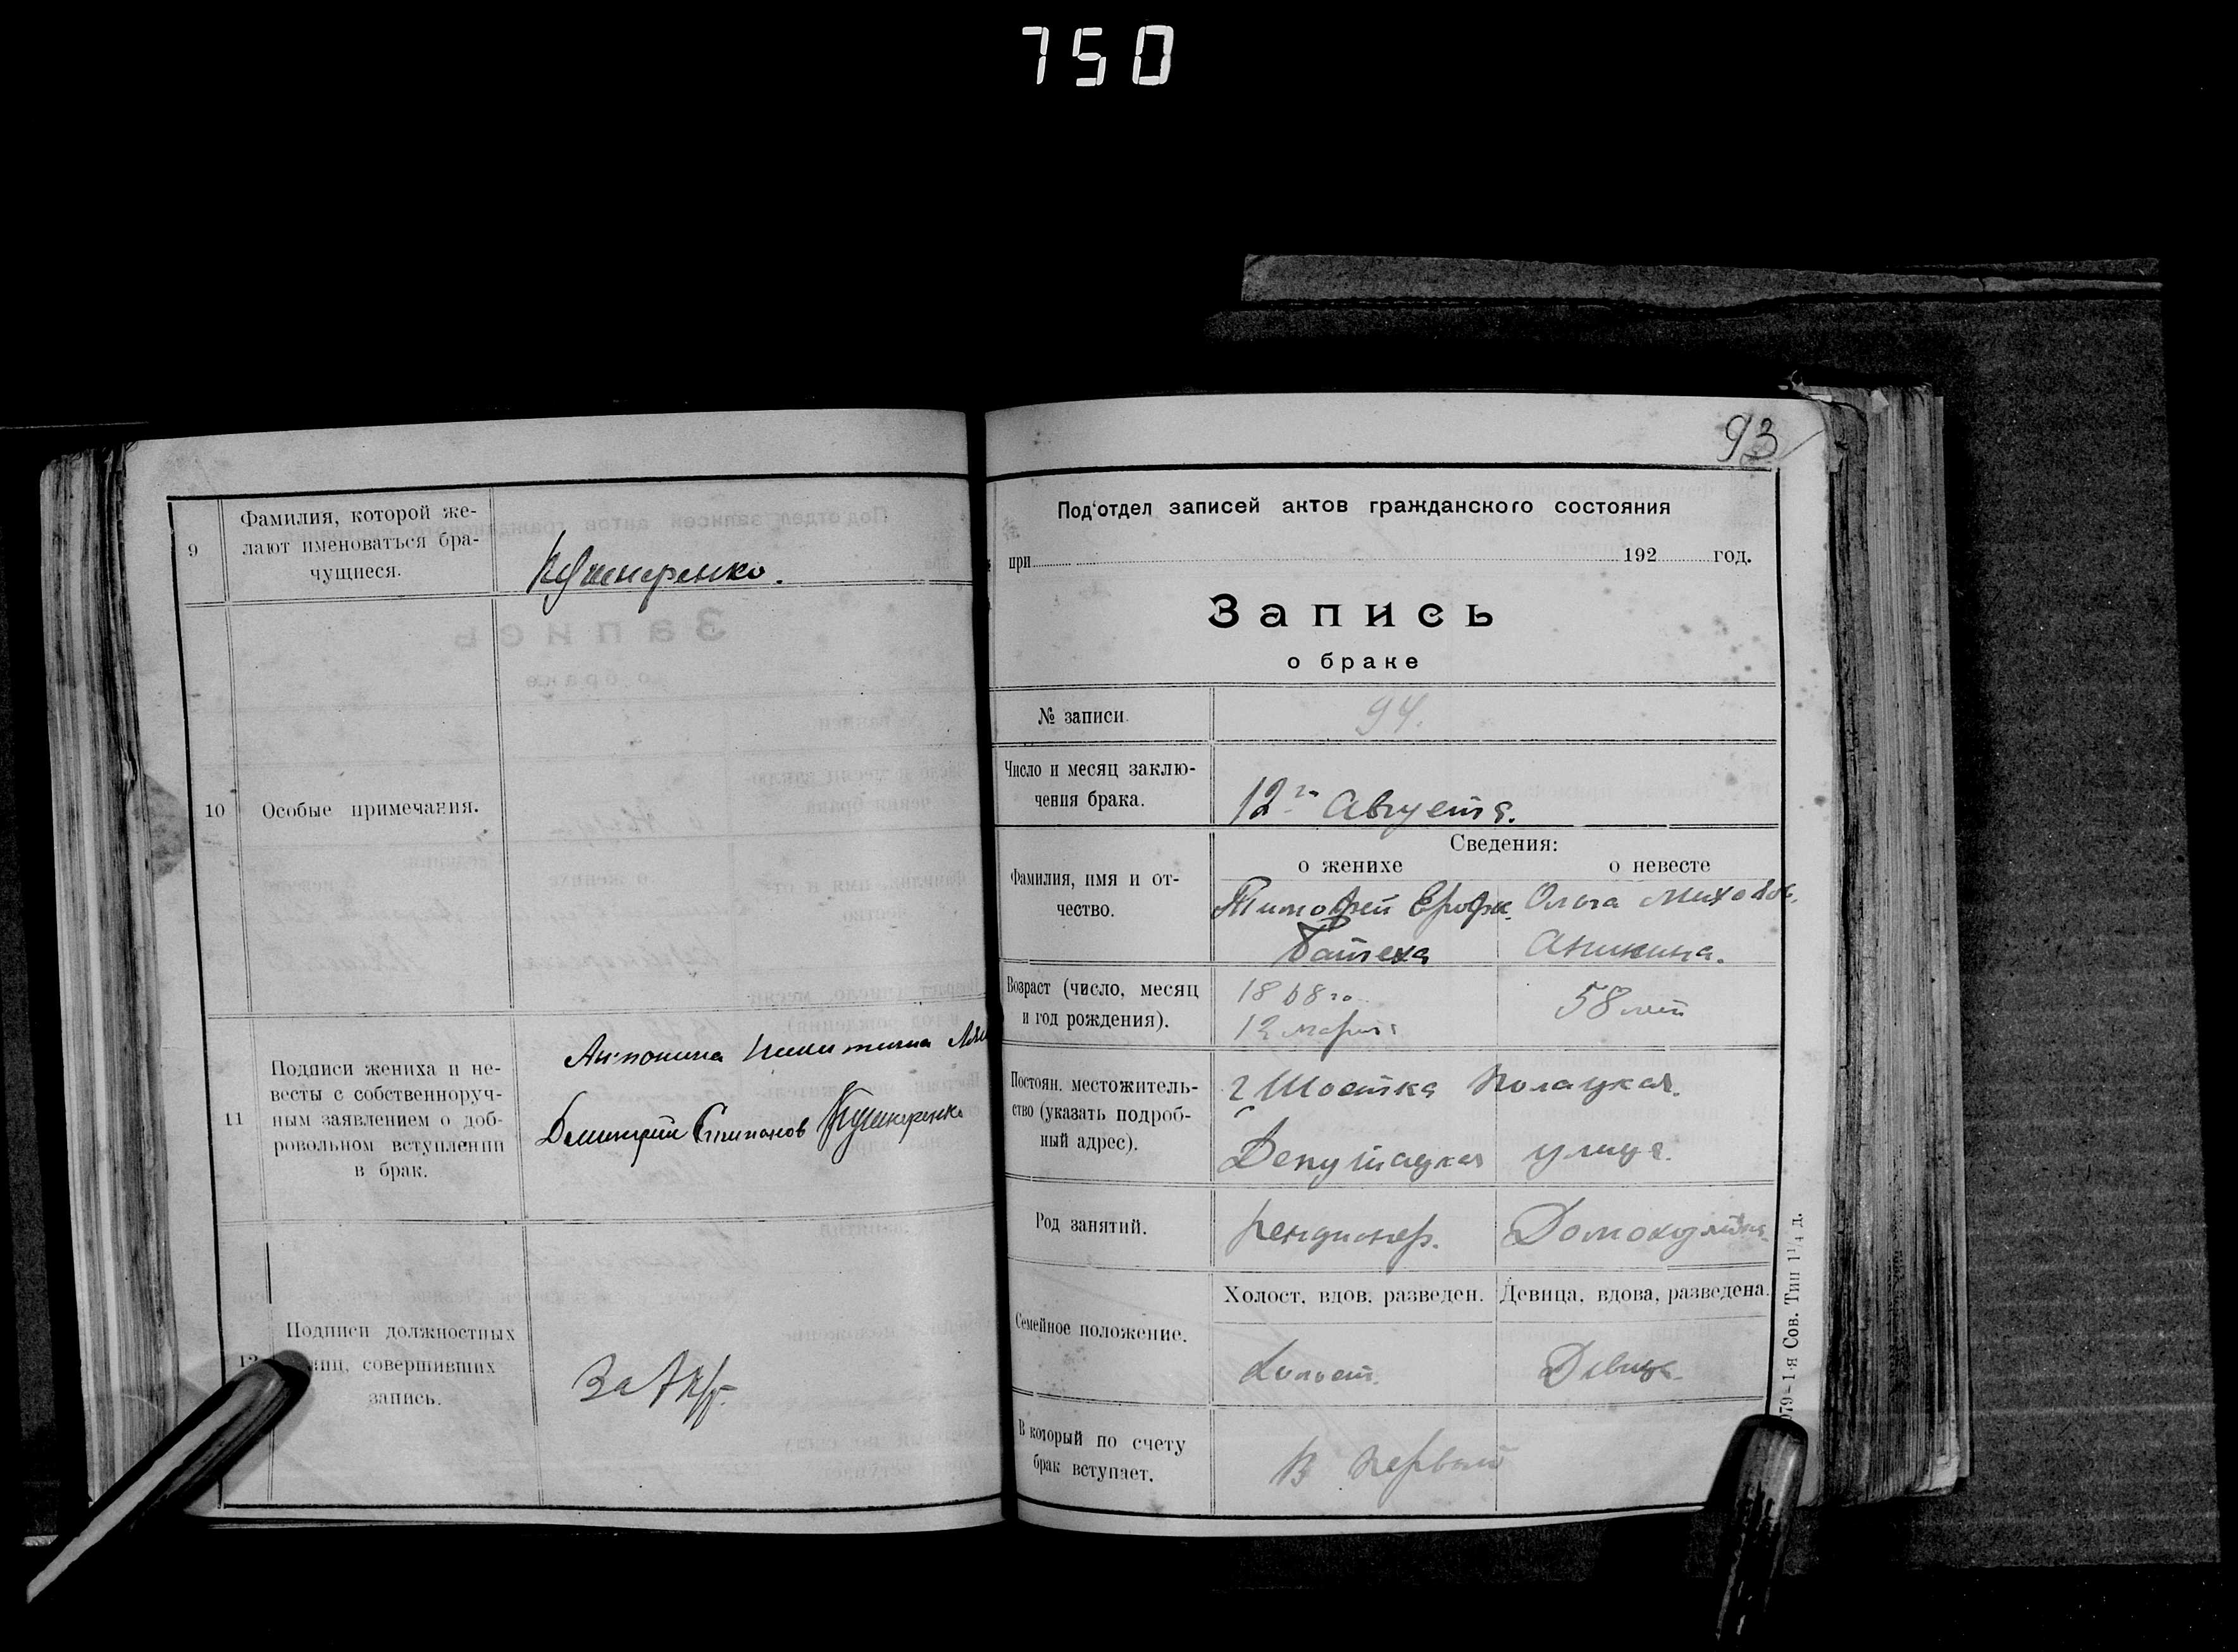 750
9
Фамилия, которой же-
лают именоваться бра-
чущиеся.
Кушнеренко.
10
Особые примечания.
11
Подписи жениха и не-
весты с собственноруч-
ным заявлением о доб-
ровольном вступлении
в брак.
Антонина Никитична
Димитрий Стипанов Кушнеренко
12
Подписи должностных
лиц, совершивших
запись.
93
Под'отдел записей актов гражданского состояния
при 192 год.
Запись
о браке
№ записи
94.
Число и месяц заклю-
чения брака.
12го Августа.
Сведения:
о женихе о невесте
Фамилия, имя и от-
чество.
Тимофей Ерофе. Ольга Михайлов.
Батеха Аникина.
Возраст (число, месяц
и год рождения).
1868 го
12 марта
58 лет
Постоян. местожитель-
ство (указать подроб-
ный адрес).
г Шостка
Депутацкая улица.
Род занятий.
пенционер. Домохозяйка.
Семейное положение.
Холост, вдов, разведен. Девица, вдова, разведена.
Холост. Девица
В который по счету
брак вступает.
В первый
079-1-я Сов. Тип 1¼ д.